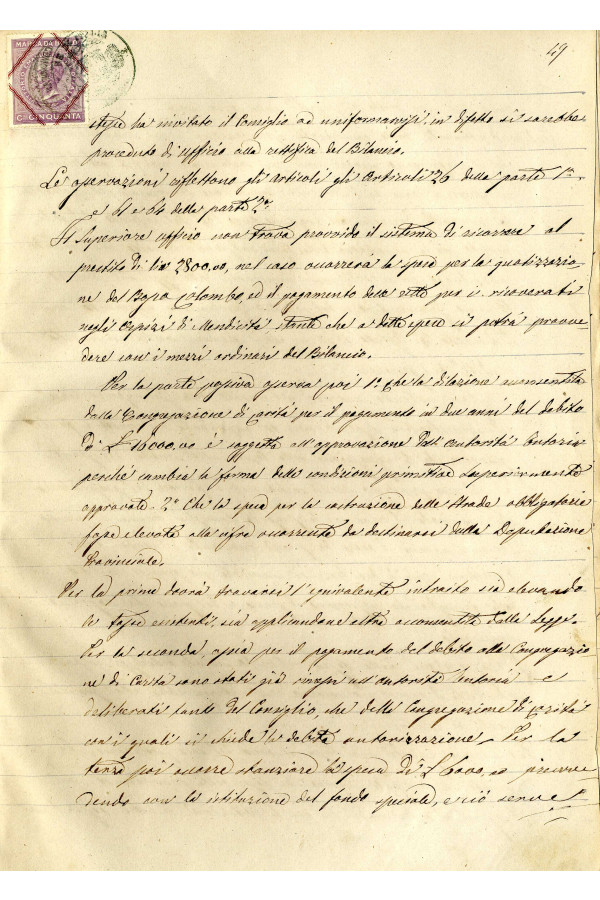 49
MARCA DA BOLLO
CMI CINQUANTA
stesso ha invitato il Consiglio ad uniformarvisi, in difetto si sarebbe
proceduto d'ufficio alla rettifica del Bilancio.
Le osservazioni riflettono gli articoli gli Articoli 26 della parte 1a
e 61 e 64 della parte 2a
Il Superiore ufficio non trova provvido il sistema di ricorrere al
prestito di lire 2800,00, nel caso occorrerà la spesa per la quotizzazio
ne del Bosco Colombo, ed il pagamento delle rette per i ricoverati
negli Ospizi di Mendicità stante che a dette spese si potrà provve
dere con i mezzi ordinari del Bilancio.
Per la parte passiva osserva poi 1o che la dilazione consentita
dalla Congregazione di carità per il pagamento in due anni del debito
di £ 16000,00 è soggetta all'approvazione dell'autorità tutoria
perchè cambia la forma delle condizioni primitive superiormente
approvate. 2o che la spesa per la costruzione delle strade obbligatorie
fosse elevata alla cifra occorrente da destinarsi dalla Deputazione
Provinciale.
Per la prima dovrà trovarsi l'equivalente introito sia elevando
le tasse esistenti, sia applicandone altre acconsentite dalla legge.
Per la seconda, ossia per il pagamento del debito alla Congregazio
ne di Carità sono stati già all'autorità tutoria e
deliberati tanto del Consiglio, che della Congregazione di carità
con i quali si chiede la debita autorizzazione. Per la
terza poi occorre stanziare la spesa di £ 6000,00
dendo con la istituzione del fondo speciale, e ciò